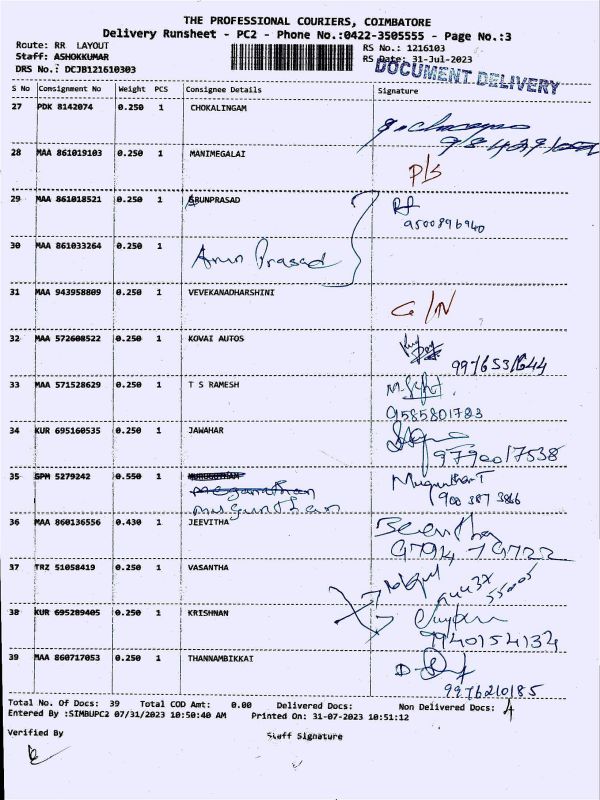 THE PROFESSIONAL COURIERS, COIMBATORE
Delivery Runsheet - PC2 - Phone No.:0422-3505555 - Page No.:3
Route: RR LAYOUT RS No.: 1216103
Staff: ASHOKKUMAR RS Date: 31-Jul-2023
DRS No.: DCJB121610303
DOCUMENT DELIVERY
S No Consignment No Weight PCS Consignee Details Signature
27 PDK 8142074 0.250 1 CHOKALINGAM
28 MAA 861019103 0.250 1 MANIMEGALAI
P/S
29 MAA 861018521 0.250 1 ARUNPRASAD
9500896940
30 MAA 861033264 0.250 1
Arun Prasad
31 MAA 943958809 0.250 1 VEVEKANADHARSHINI
G/N
32 MAA 572608522 0.250 1 KOVAI AUTOS
9976531644
33 MAA 571528629 0.250 1 T S RAMESH
9585801783
34 KUR 695160535 0.250 1 JAWAHAR
9790017538
35 GPM 5279242 0.550 1
Muguntha T
900 387 3866
36 MAA 860136556 0.430 1 JEEVITHA
Jeevitha
37 TRZ 51058419 0.250 1 VASANTHA
38 KUR 695289405 0.250 1 KRISHNAN
9940154134
39 MAA 860717053 0.250 1 THANNAMBIKKAI
9976210185
Total No. Of Docs: 39 Total COD Amt: 0.00 Delivered Docs: Non Delivered Docs: 4
Entered By :SIMBUPC2 07/31/2023 10:50:40 AM Printed On: 31-07-2023 10:51:12
Verified By Staff Signature